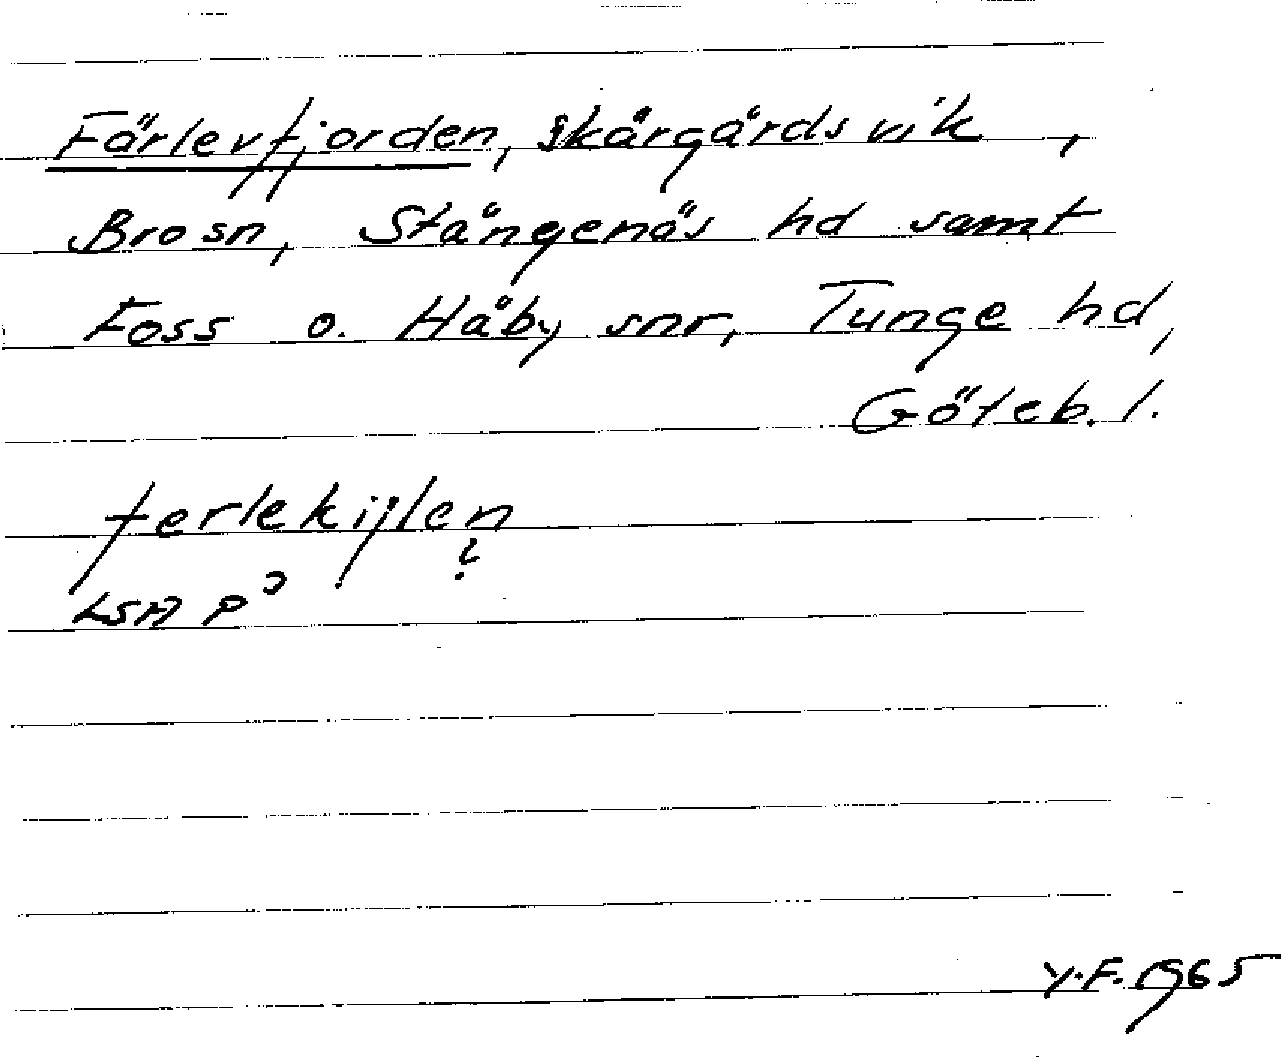 Färlevfjorden, skärgårdsvik,
Bro sn, Stångenäs hd samt
Foss o. Håby snr, Tunge hd,
Göteb. l.
ferlekijlen
?
LSA P
Y.F. 1965